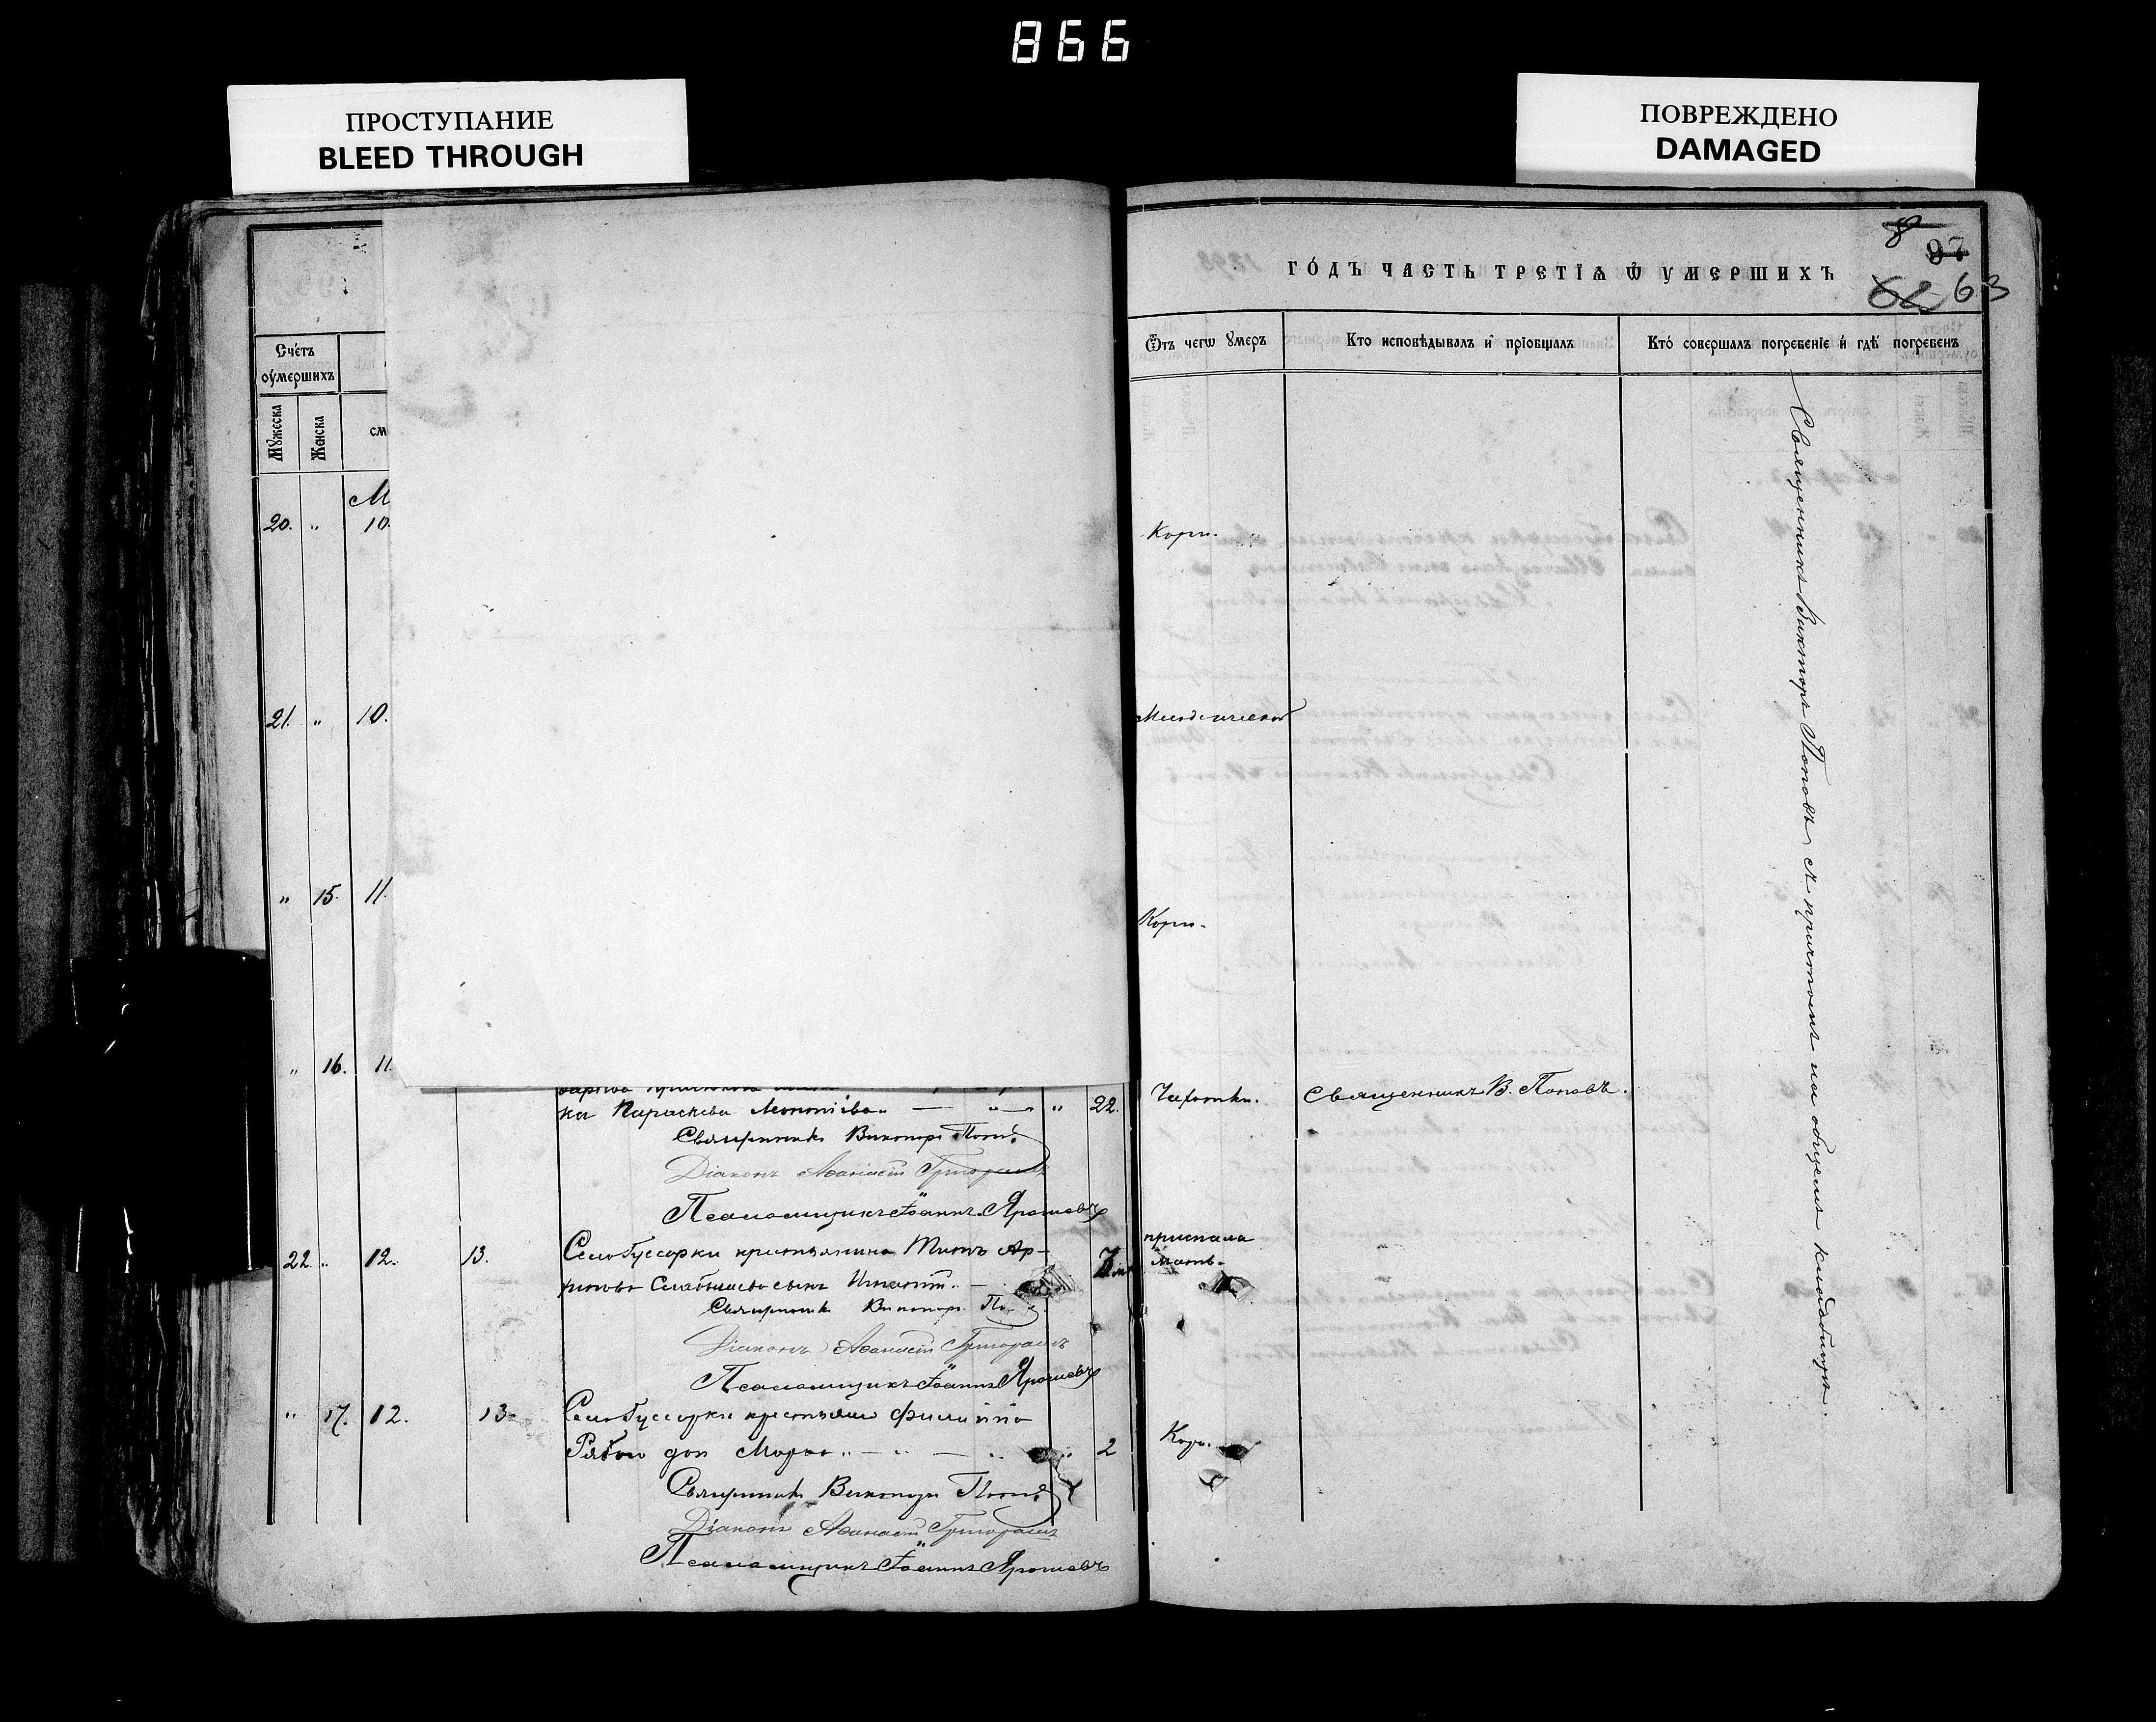 866
ПРОСТУПАНИЕ
BLEED THROUGH
ПОВРЕЖДЕНО
DAMAGED
Счетъ
оумершихъ
Мꙋжеска
Женска
см
М
20. „ 10.
21. „ 10.
„ 15. 11.
„ 16. 11.
ка Параскева Леонтіева „ — „ — „ 22.
Священникъ Викторъ Поповъ
Діаконъ Аѳанасій Григорашъ
Псаломщикъ Іоаннъ Ярошевъ
22. „ 12. 13. Село Гуссарки крестьянина
сынъ Игнатій. —
Священникъ Викторъ
Діаконъ Аѳанасій Григорашъ
Псаломщикъ Іоаннъ Ярошевъ
„ 17. 12. 13. Село Гуссарки крестьян Филиппа
доч „ — „ — „ „ 2
Священникъ Викторъ Поповъ
Діаконъ Аѳанасій Григорашъ
Псаломщикъ Іоаннъ Ярошевъ
8 97
62 63
ГО́ДЪ ЧАСТЬ ТРЕТІѦ Ѿ УМЕРШИХЪ
Ѿтъ чегѡ ᲂумеръ
Кто исповѣдывалъ и пріобщалъ
Кто́ совершалъ погребеніе и́ гдѣ́ погребенъ
Кори.
Младенческой
Кори.
Чахотки. Священникъ В. Поповъ.
приспала
мать.
Кори.
Священникъ Викторъ Поповъ съ причтомъ на общемъ кладбищѣ.